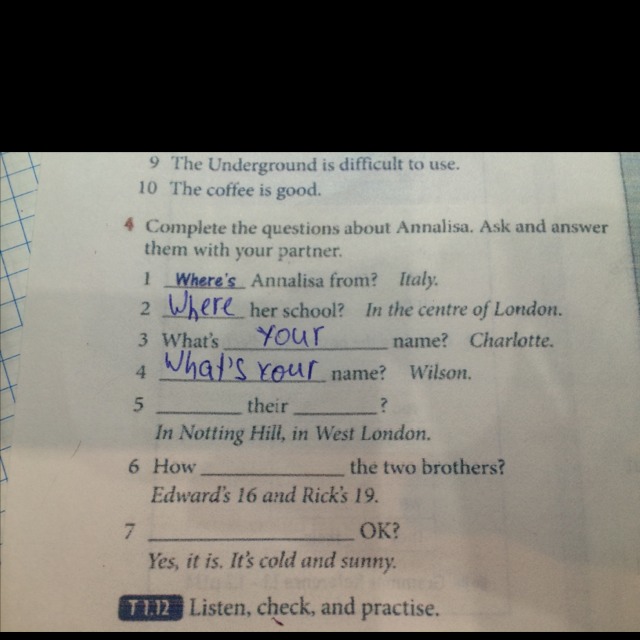 9 The Underground is difficult to use.
10 The coffee is good.
4 Complete the questions about Annalisa. Ask and answer
them with your partner.
1 Where's Annalisa from? Italy.
2 Where her school? In the centre of London.
3 What's your name? Charlotte.
4 What's your name? Wilson.
5 ________ their ________?
In Notting Hill, in West London.
6 How ______________ the two brothers?
Edward's 16 and Rick's 19.
7 ____________________ OK?
Yes, it is. It's cold and sunny.
T 1.12 Listen, check, and practise.